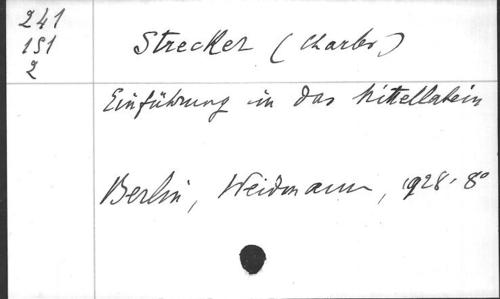 241
151
2
Strecker (Charles)
Einführung in das Mittellatein
Berlin, Weidmann, 1928. 8°